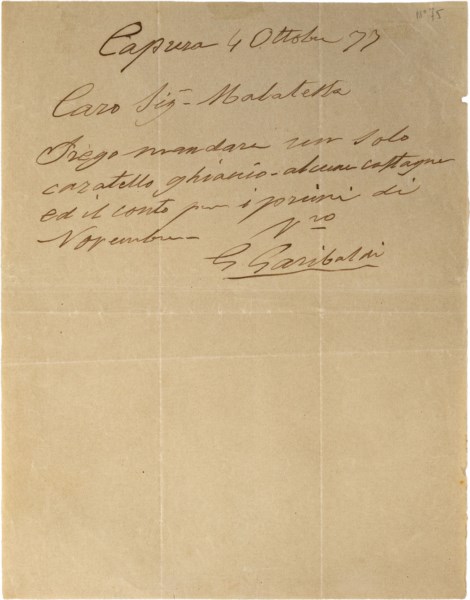 N° 75
Caprera 4 Ottobre 77
Caro Sigr Malatesta
Prego mandare un solo
caratello ghiaccio - alcune castagne
ed il conto per i primi di
Novembre - Vro
G Garibaldi